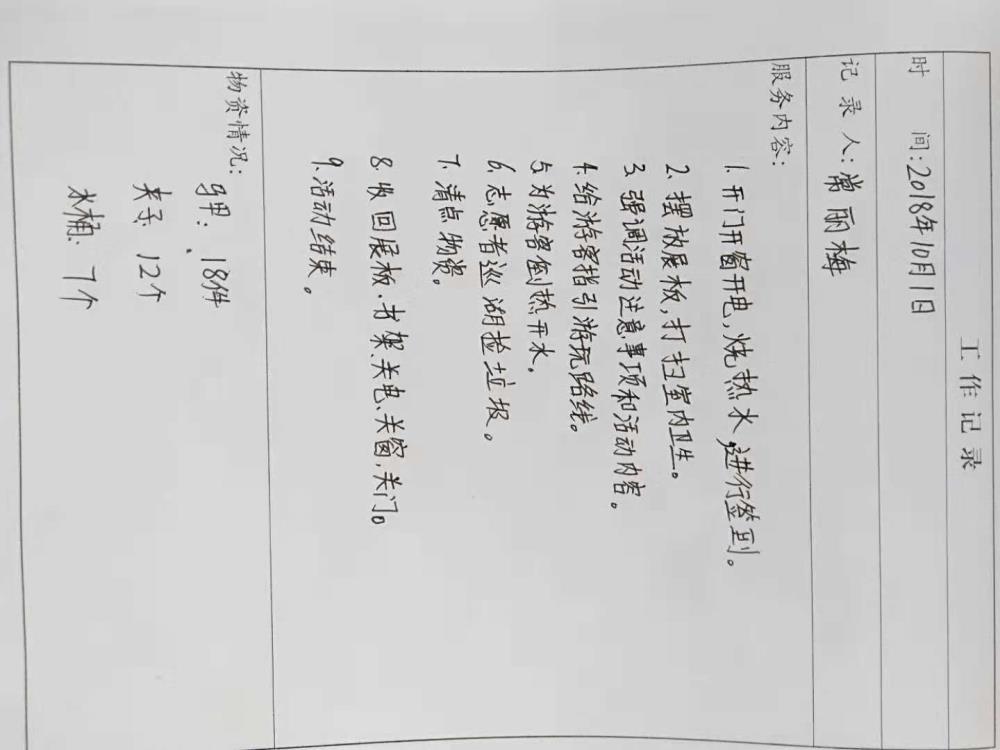 工作记录
时 间:2018年10月1日
记录人:常丽梅
服务内容:
1.开门开窗开电,烧热水,进行签到。
2.摆放展板,打扫室内卫生。
3.强调活动注意事项和活动内容。
4.给游客指引游玩路线。
5.为游客倒热开水。
6.志愿者巡湖捡垃圾。
7.清点物资。
8.收回展板、书架、关电、关窗,关门。
9.活动结束。
物资情况:
马甲:18件
夹子:12个
水桶:7个